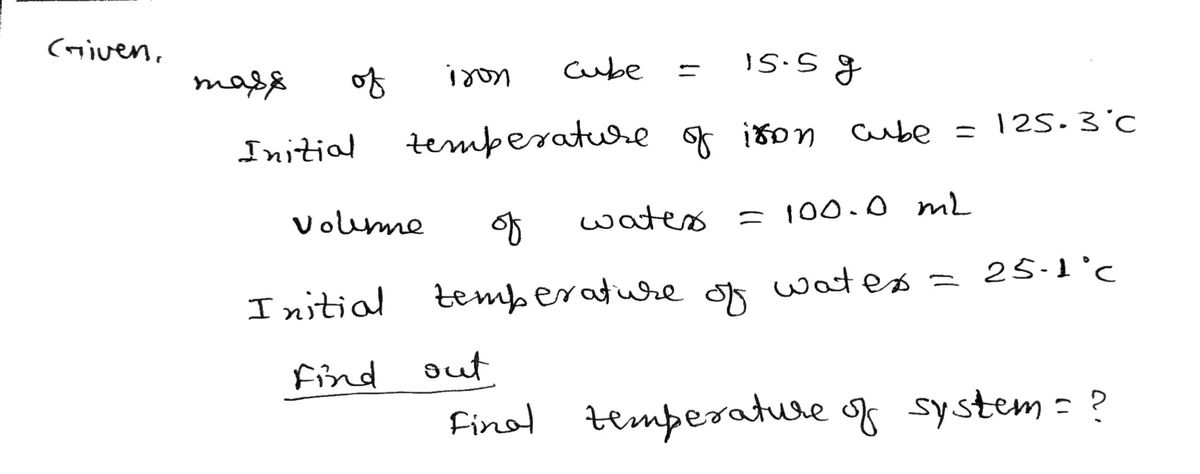 Given,
mass of iron cube = 15.5 g
Initial temperature of iron cube = 125.3°C
Volume of water = 100.0 mL
Initial temperature of water = 25.1°C
Find out
Final temperature of system = ?